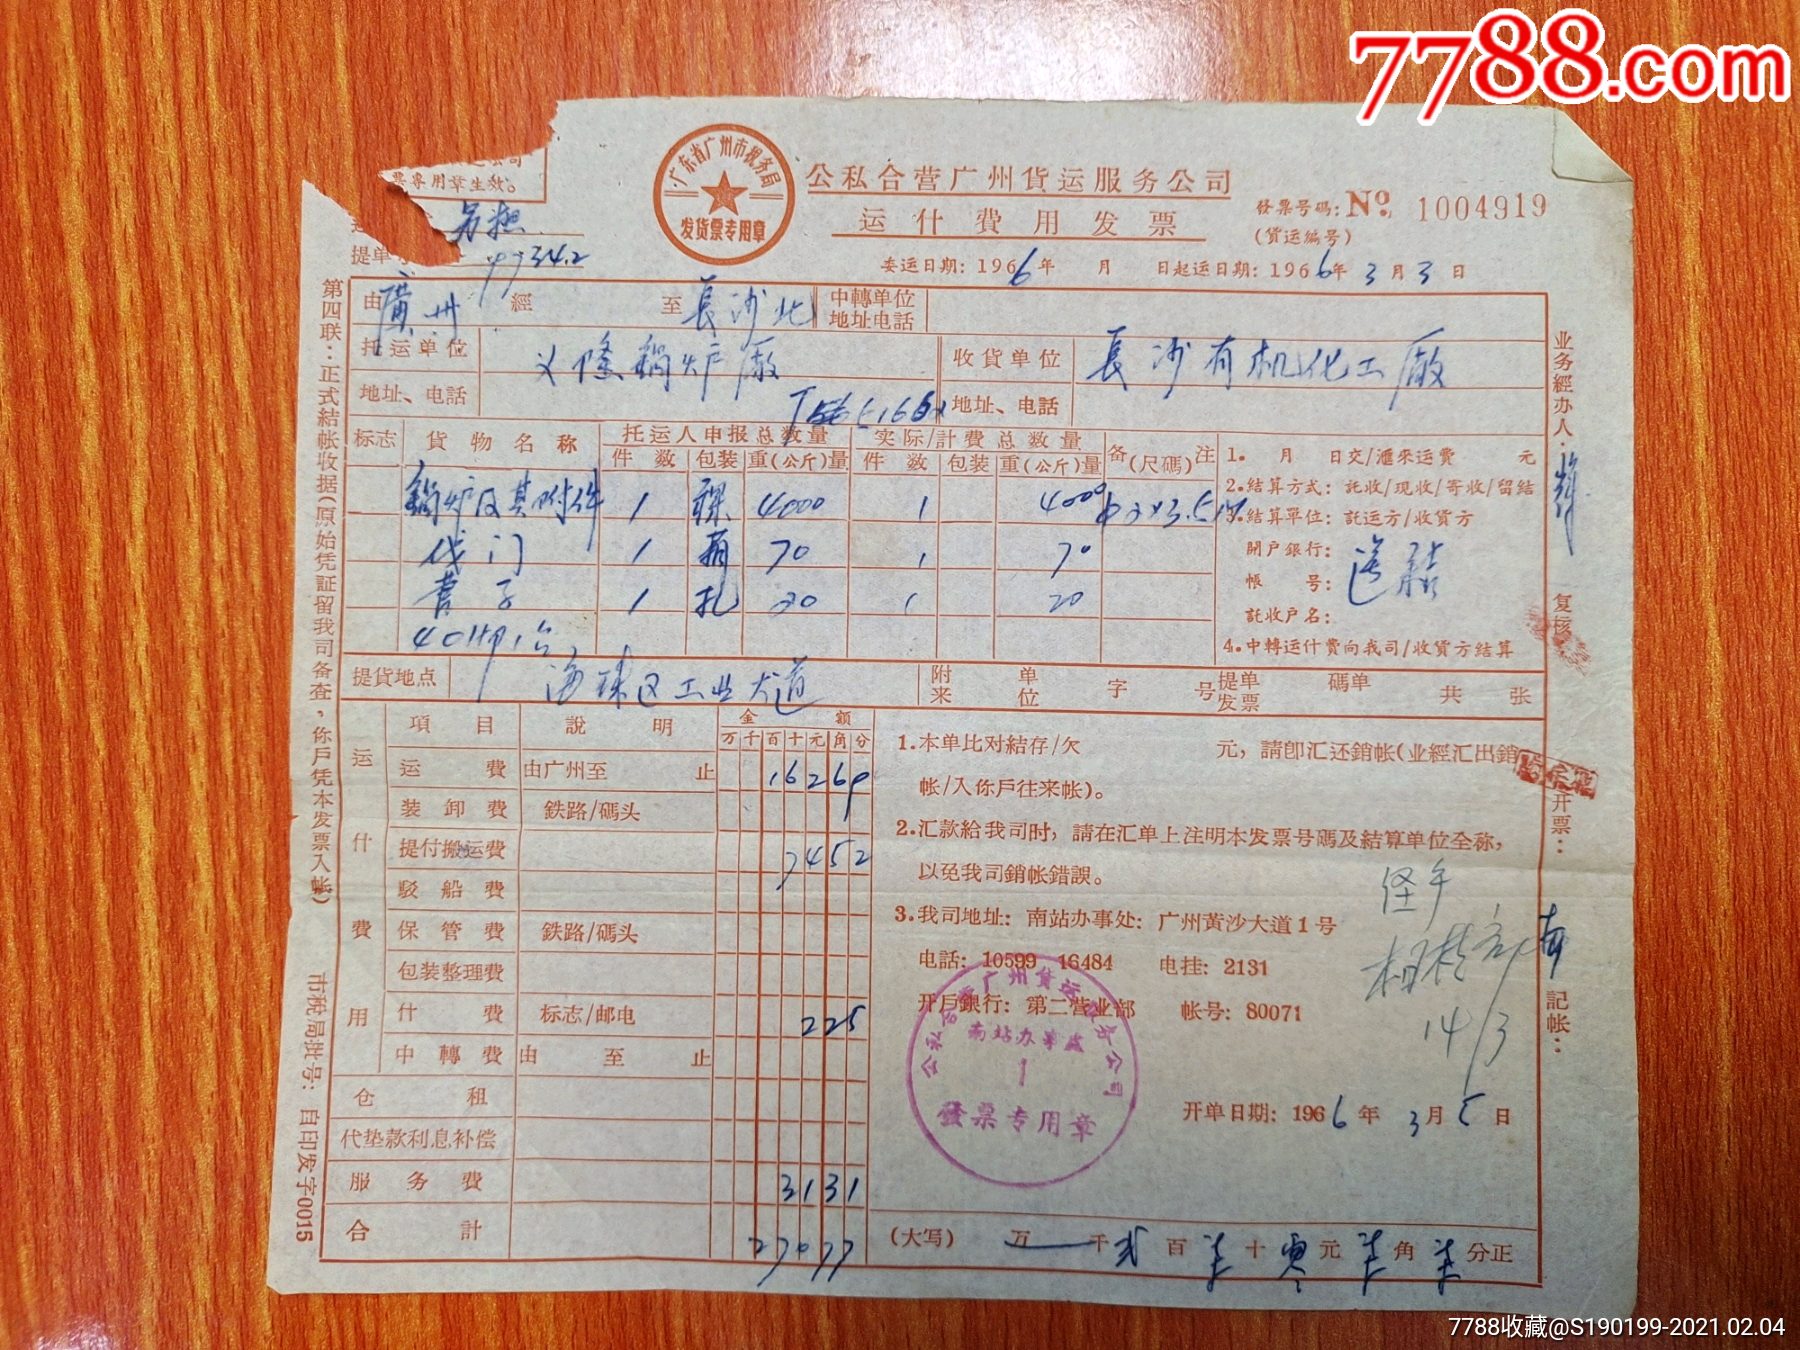 7788.com
票專用章生效。
广东省广州市税务局
发货票专用章
公私合营广州货运服务公司
运什費用发票
發票号碼: No. 1004919
(貨运編号)
提单
委运日期: 1966年 月 日起运日期: 1966年3月3日
由廣州 經 至長沙北 中轉单位
地址电話
托运单位 义隆鍋炉廠 收貨单位 長沙有机化工廠
地址、电話 地址、电話
标志 貨物名称 托运人申报总数量 实际/計費总数量 备(尺碼)注
件数 包装 重(公斤)量 件数 包装 重(公斤)量
鍋炉及其附件 1 裸 4000 1 4000
伐门 1 70 1 70
管子 1 扎 20 1 20
40HP1台
1. 月 日交/滙来运费 元
2.結算方式: 託收/現收/寄收/留結
3.結算單位: 託运方/收貨方
開户銀行:
帳 号:
託收户名:
4.中轉运什費向我司/收貨方結算
提貨地点 海珠区工业大道 附来 单位 字 号 提单发票 碼单 共 张
項目 説明 金额
万千百十元角分
运什費用
运費 由广州至 止 16269
装卸費 鉄路/碼头
提付搬运費 7452
駁船費
保管費 鉄路/碼头
包装整理費
什費 标志/邮电 225
中轉費 由 至 止
仓租
代垫款利息补偿
服务費 3131
合計 27077
1.本单比对結存/欠 元，請卽汇还銷帐(业經汇出銷
帐/入你戶往来帐)。
2.汇款給我司时，請在汇单上注明本发票号碼及結算单位全称，
以免我司銷帐錯誤。
3.我司地址: 南站办事处: 广州黃沙大道1号
电話: 10599 16484 电挂: 2131
开戶銀行: 第二营业部 帐号: 80071
公私合营广州货运服务公司
南站办事處
1
發票专用章
经手
14/3
开单日期: 1966年3月5日
(大写) 万 千 贰 百 柒 十 零 元 柒 角 柒 分正
第四联:正式結帐收据(原始凭証留我司备查，你戶凭本发票入帐)
市税局批号: 自印发字0015
业务經办人:
复核
开票:
記帐:
7788收藏@S190199-2021.02.04